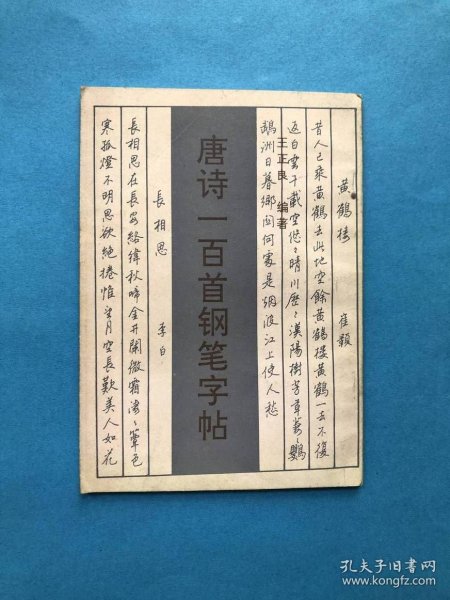 黄鹤楼 崔颢
昔人已乘黄鹤去此地空餘黄鹤楼黄鹤一去不復
返白雲千載空悠〻晴川歷〻漢陽樹芳草萋〻鸚
鵡洲日暮鄉関何處是烟波江上使人愁
王正良 编著
唐诗一百首钢笔字帖
長相思 李白
長相思在長安絡緯秋啼金井闌微霜凄〻簟色
寒孤燈不明思欲絶捲帷望月空長歎美人如花
孔夫子旧书网
www.kongfz.com